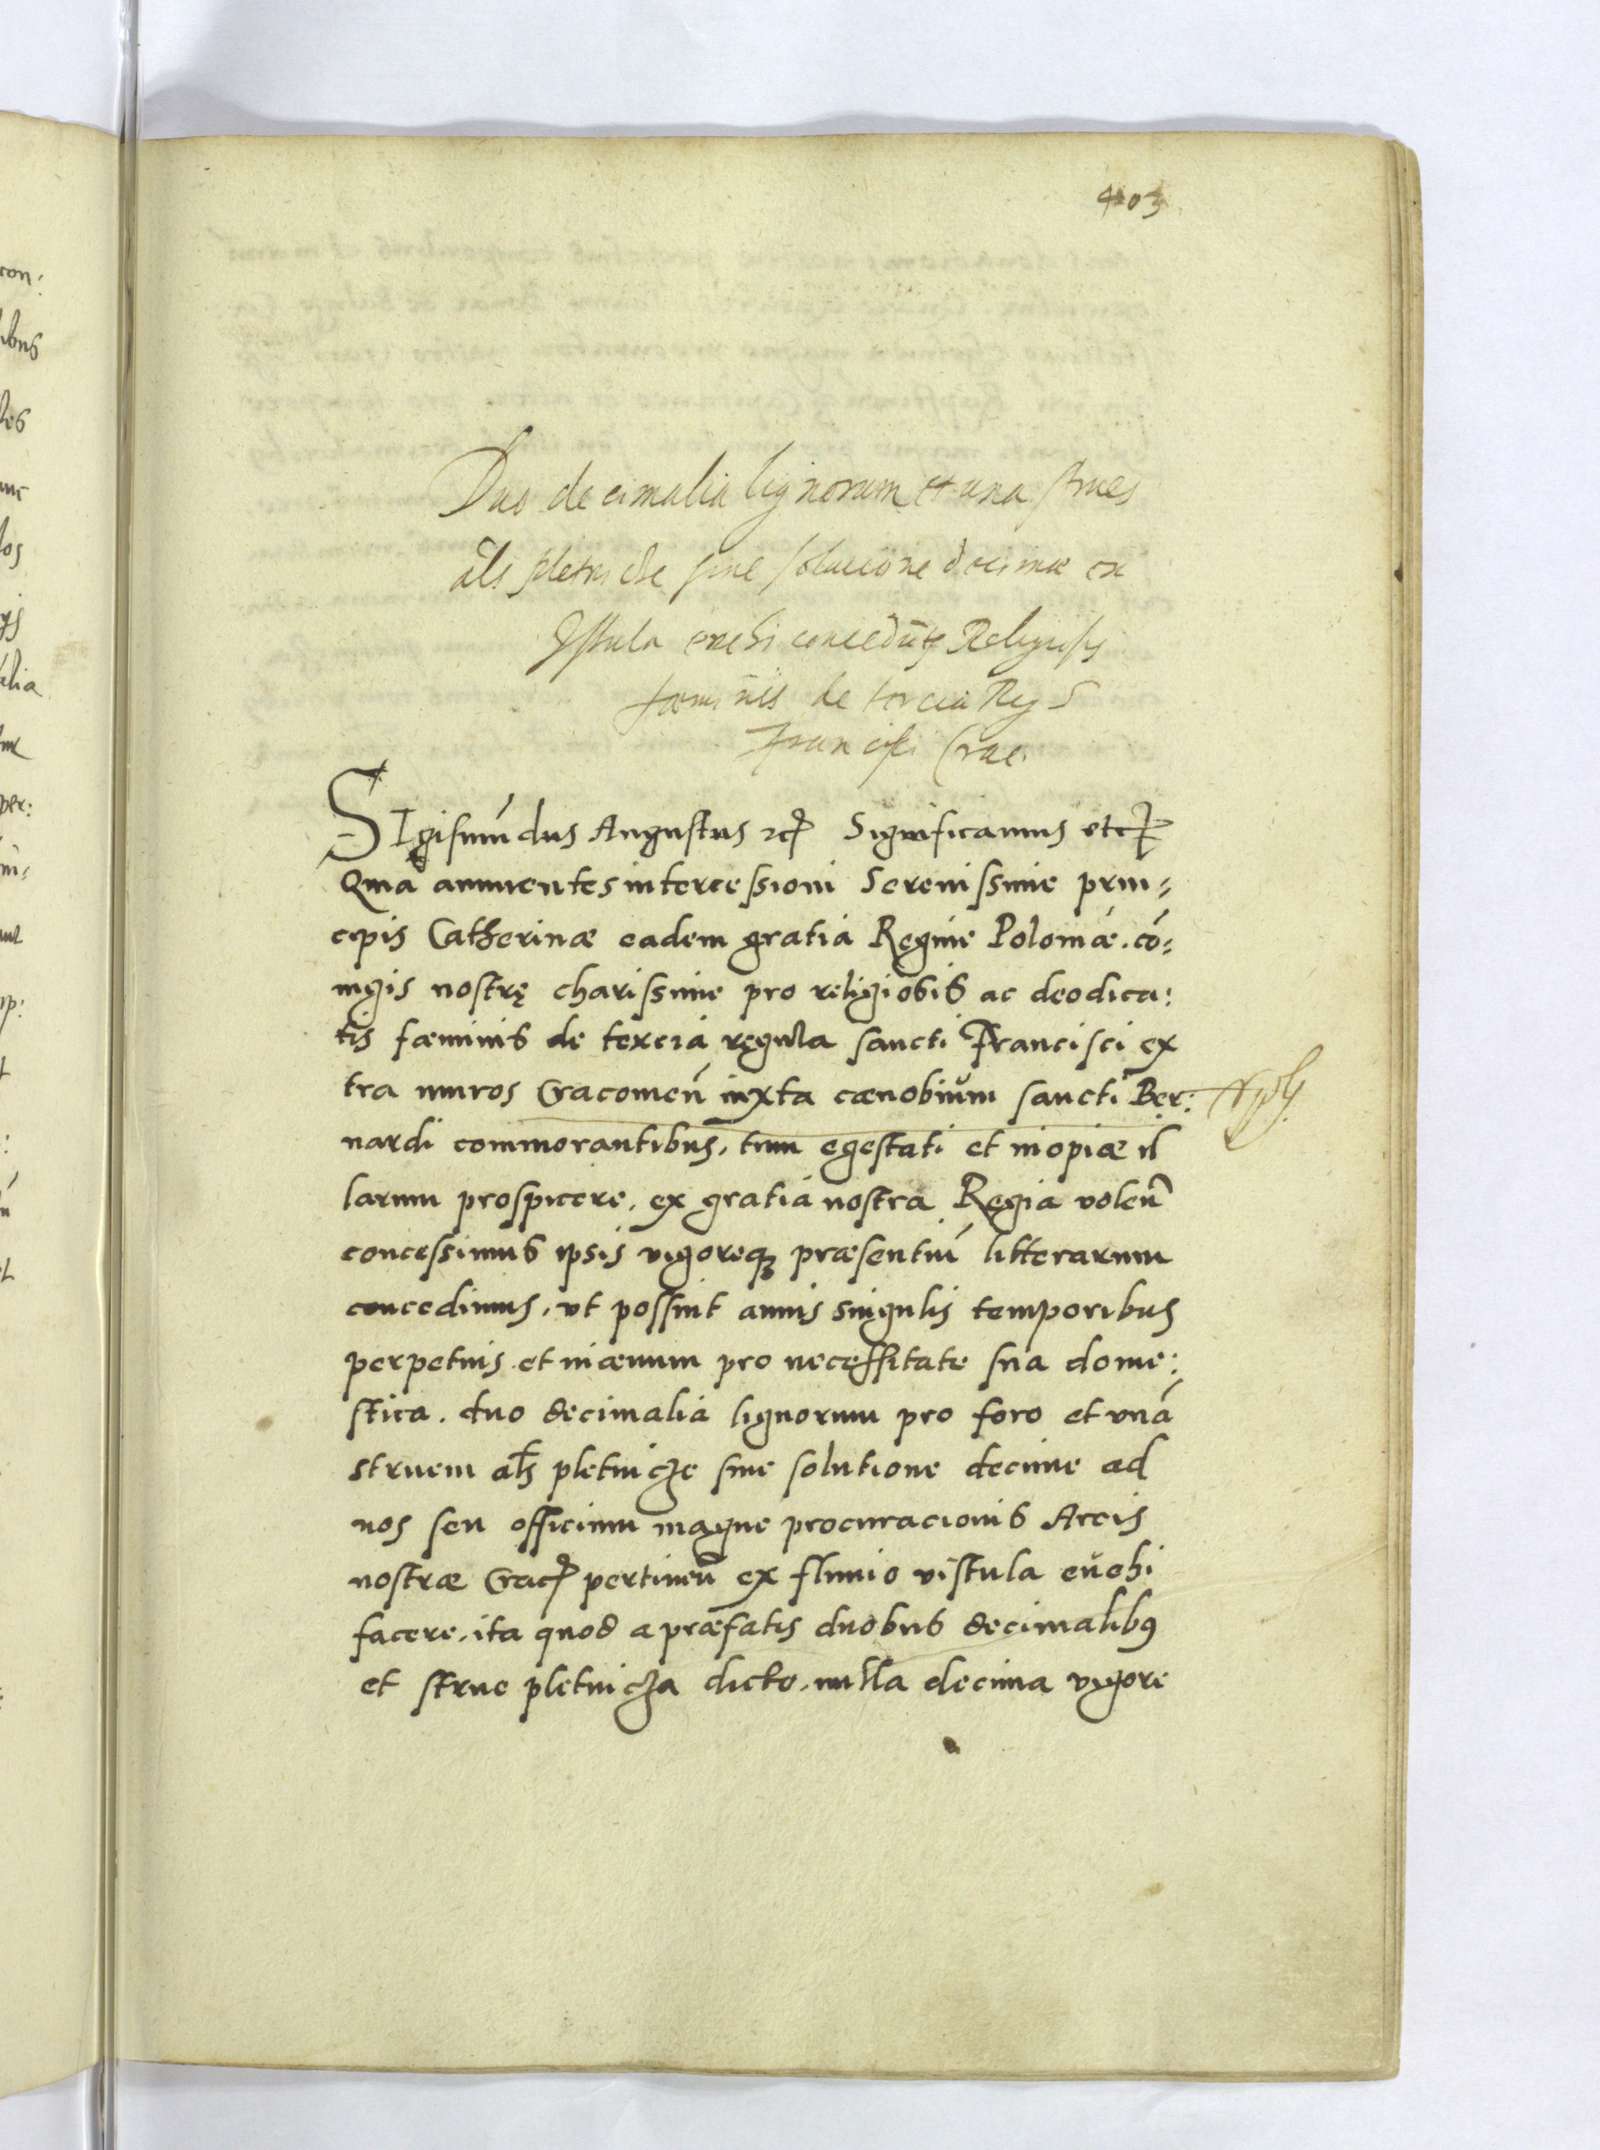 403
Duo decimalia lignorum et una strues
als pletnicze sine solucione decimae ex
Istula evehi conceduntur Religiosis
foeminis de tercia Reg S
Francisci Crac.
SIgismundus Augustus etc. Significamus etc.
Quia annuentes intercessioni Serenissimę prin=
cipis Catherinæ eadem gratia Reginę Poloniæ. cō=
iugis nostrę charissimę pro religiosis ac deodica:
tis fæminis de tercia regula sancti Francisci ex
tra muros Cracovien̄ iuxta cænobium sancti Ber:
nardi commorantibus, tum egestati et inopiæ il
larum prospicere, ex gratia nostra Regia volen̄
concessimus ipsis vigoreq; præsentiū litterarum
concedimus, ut possint annis singulis temporibus
perpetuis et in ævum pro necessitate sua dome:
stica. duo decimalia lignorum pro foro et unā
struem als pletnicze sine solutione decime ad
nos seu officium magne procuracionis Arcis
nostræ Crac. pertinen̄ ex fluvio vistula evehi
facere, ita quod a præfatis duobus decimalibus
et strue pletnicza dicto, nulla decima vigore